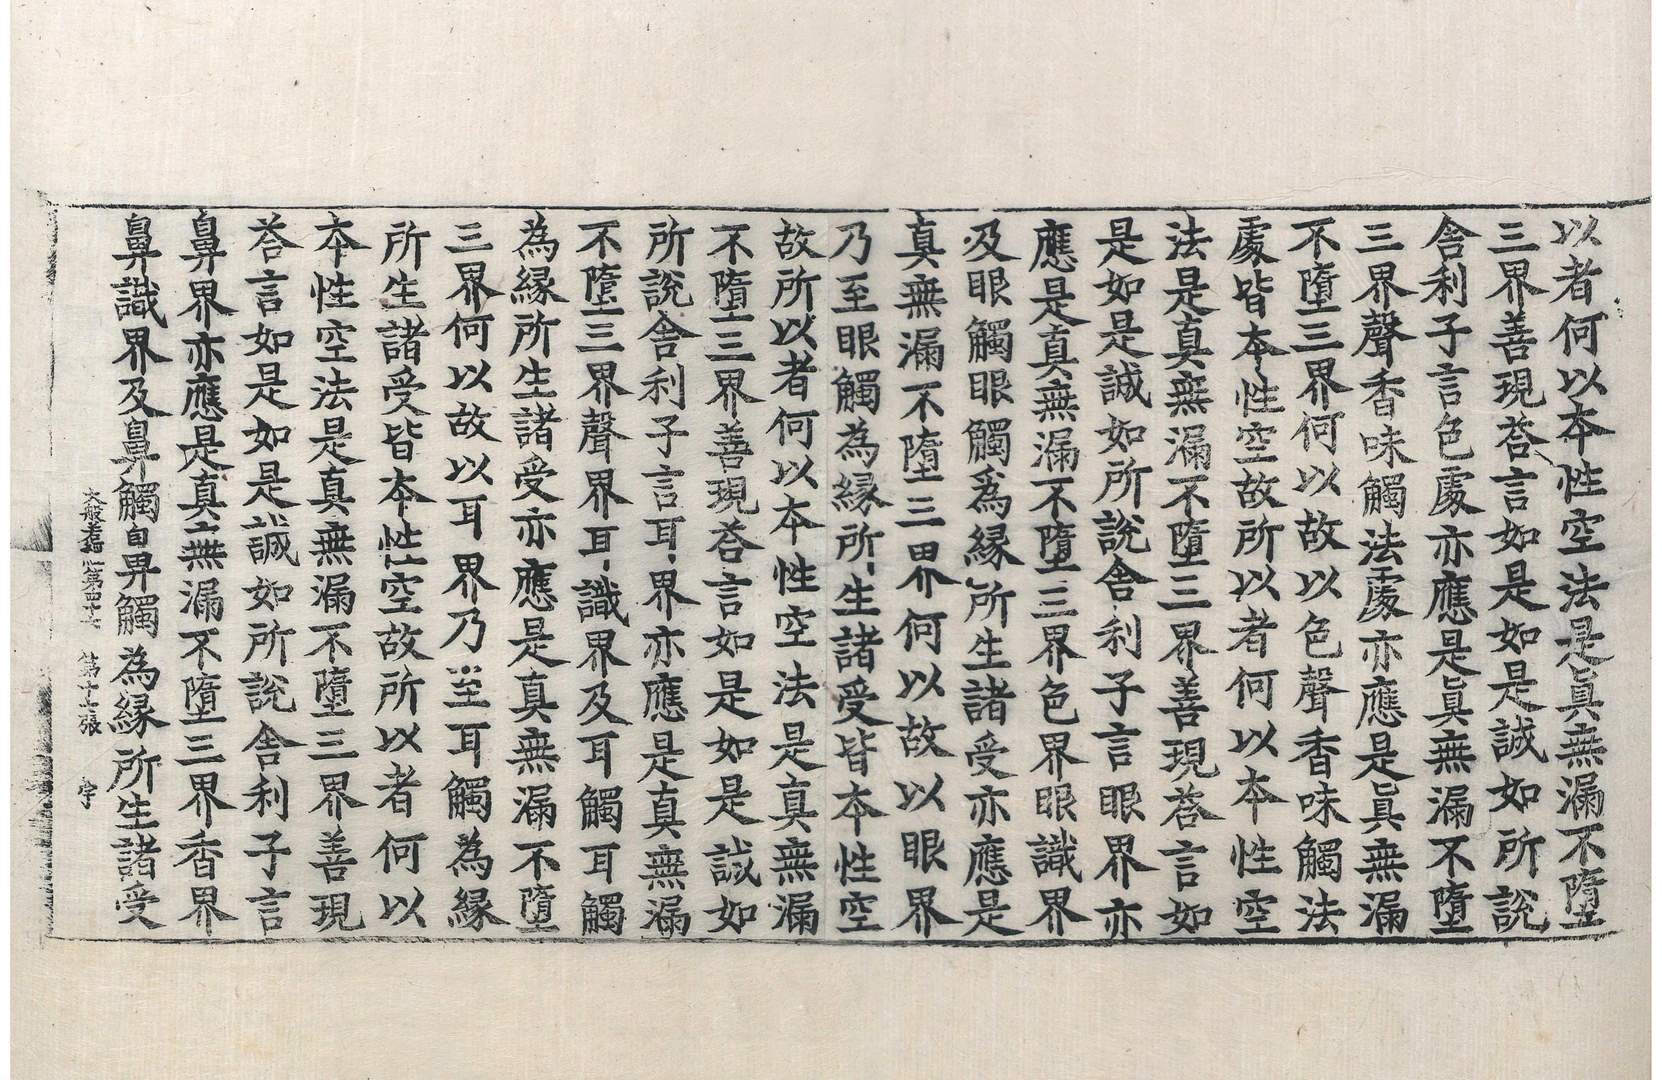 以者何以本性空法是眞無漏不墮
三界善現荅言如是如是誠如所說
舍利子言色處亦應是眞無漏不墮
三界聲香味觸法處亦應是眞無漏
不墮三界何以故以色聲香味觸法
處皆本性空故所以者何以本性空
法是真無漏不墮三界善現荅言如
是如是誠如所說舍利子言眼界亦
應是真無漏不墮三界色界眼識界
及眼觸眼觸爲緣所生諸受亦應是
真無漏不墮三界何以故以眼界
乃至眼觸為緣所生諸受皆本性空
故所以者何以本性空法是真無漏
不墮三界善現荅言如是如是誠如
所說舍利子言耳界亦應是真無漏
不墮三界聲界耳識界及耳觸耳觸
為緣所生諸受亦應是真無漏不墮
三界何以故以耳界乃至耳觸為緣
所生諸受皆本性空故所以者何以
本性空法是真無漏不墮三界善現
荅言如是如是誠如所說舍利子言
鼻界亦應是真無漏不墮三界香界
鼻識界及鼻觸鼻觸為緣所生諸受
大般若經第四十七 第十七張 宇